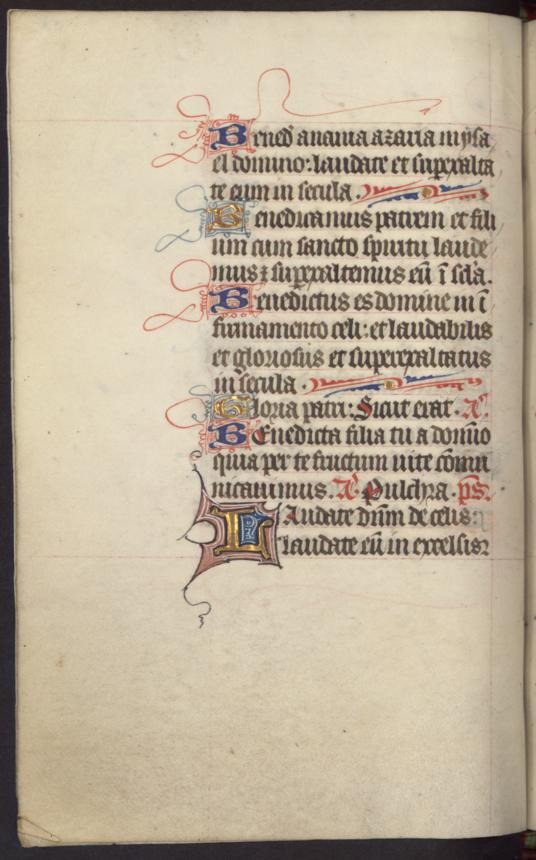 Bened̄ anania azaria mysa
el domino: laudate et superexalta
te eum in secula .
Benedicamus patrem et fili
um cum sancto spiritu laude
mus ⁊ superexaltemus eū ī scl̄a.
Benedictus es domine in ī
firmamento celi: et laudabilis
et gloriosus et superexaltatus
in secula .
Gloria patri: Sicut erat . Aͣ.
BEnedicta filia tu a domino
quia per te fructum uite cōmu
nicauimus. Aͣ. Pulchra . ps̄.
LAudate dnm̄ de celis:
laudate eū in excelsis